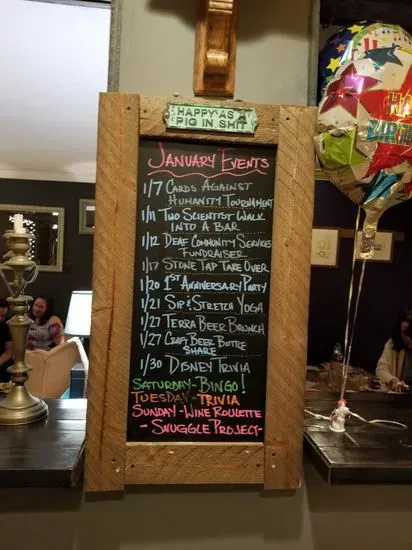 HAPPY AS A
PIG IN SHIT
JANUARY EVENTS
1/7 CARDS AGAINST
HUMANITY TOURNAMENT
1/11 TWO SCIENTIST WALK
INTO A BAR
1/12 DEAF COMMUNITY SERVICES
FUNDRAISER
1/17 STONE TAP TAKE OVER
1/20 1ST ANNIVERSARY PARTY
1/21 SIP & STRETCH YOGA
1/27 TERRA BEER BRUNCH
1/27 CRAFT BEER BOTTLE
SHARE
1/30 DISNEY TRIVIA
SATURDAY - BINGO!
TUESDAY - TRIVIA
SUNDAY - WINE ROULETTE
- SNUGGLE PROJECT -